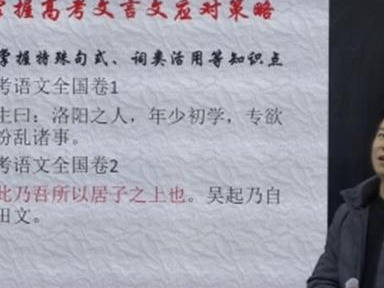 掌握高考文言文应对策略
掌握特殊句式、词类活用等知识点
考语文全国卷1
主曰：洛阳之人，年少初学，专欲
纷乱诸事。
考语文全国卷2
此乃吾所以居子之上也。吴起乃自
田文。